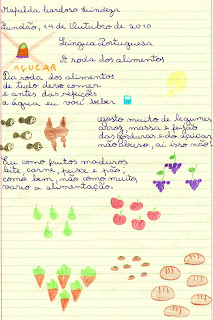 Mafalda Cardoso Mendeza
Fundão, 14 de Outubro de 2010
Língua Portuguesa
A roda dos alimentos
AÇUCAR
Da roda dos alimentos
de tudo devo comer
e antes das refeições
a água eu vou beber
Gosto muito de legumes
arroz, massa e feijão
das gorduras e do açúcar
não abuso, ai isso não!
Eu como frutos maduros
leite, carne, peixe e pão;
como bem, não como muito,
vario a alimentação.